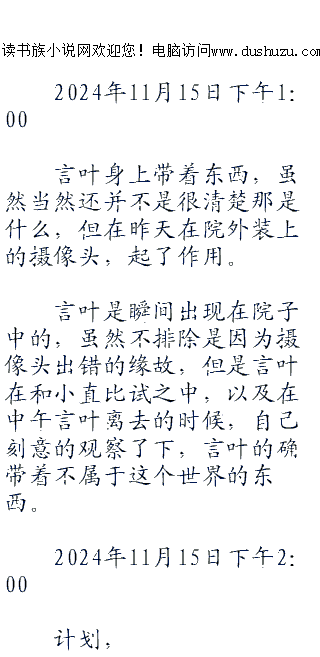 读书族小说网欢迎您！电脑访问www.dushuzu.com
2024年11月15日下午1：
00
言叶身上带着东西，虽
然当然还并不是很清楚那是
什么，但在昨天在院外装上
的摄像头，起了作用。
言叶是瞬间出现在院子
中的，虽然不排除是因为摄
像头出错的缘故，但是言叶
在和小直比试之中，以及在
中午言叶离去的时候，自己
刻意的观察了下，言叶的确
带着不属于这个世界的东
西。
2024年11月15日下午2：
00
计划，